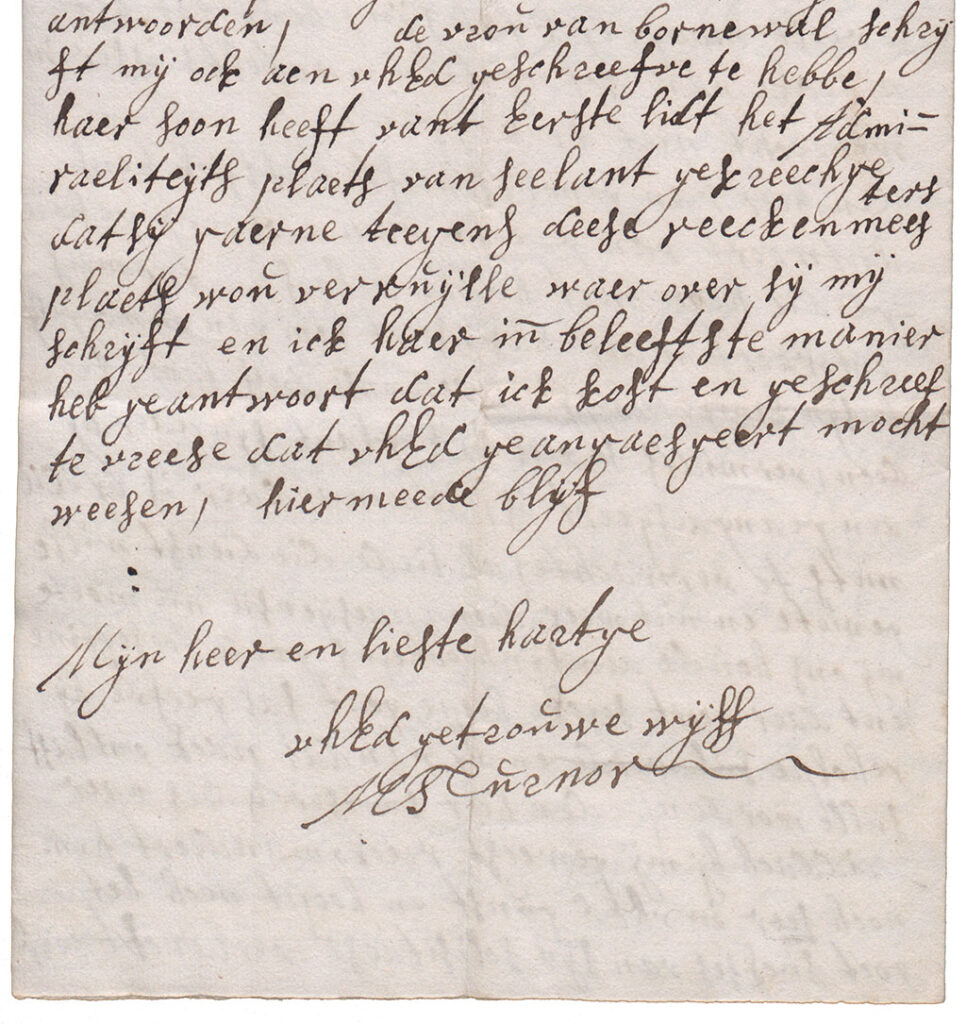 antwoorden, de vrou van bornewal schry
ft mij ock aen vhEd geschreefve te hebbe,
haer soon heeft vant Eerste lidt het Admi=
raeliteyts plaets van seelant gekreechge
dat sij gaerne teegens deese reeckenmees
ters
plaets wou verruijlle waer over sij mij
schrijft en ick haer in beleefste manier
heb geantwoort dat ick kost en geschreef
te vreese dat vhEd geangaesgeert mocht
weesen, hiermeede blijf
Mijn heer en liefste hartge
vhEd getrouwe wijff
M Turnor